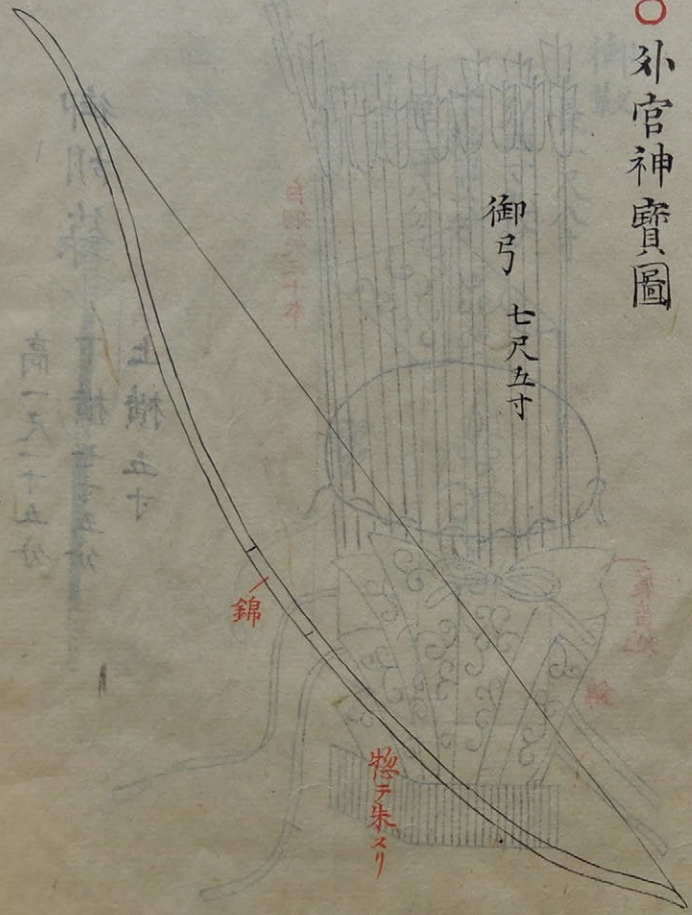 〇外宮神寶圖
御弓 七尺五寸
錦
惣テ朱ヌリ